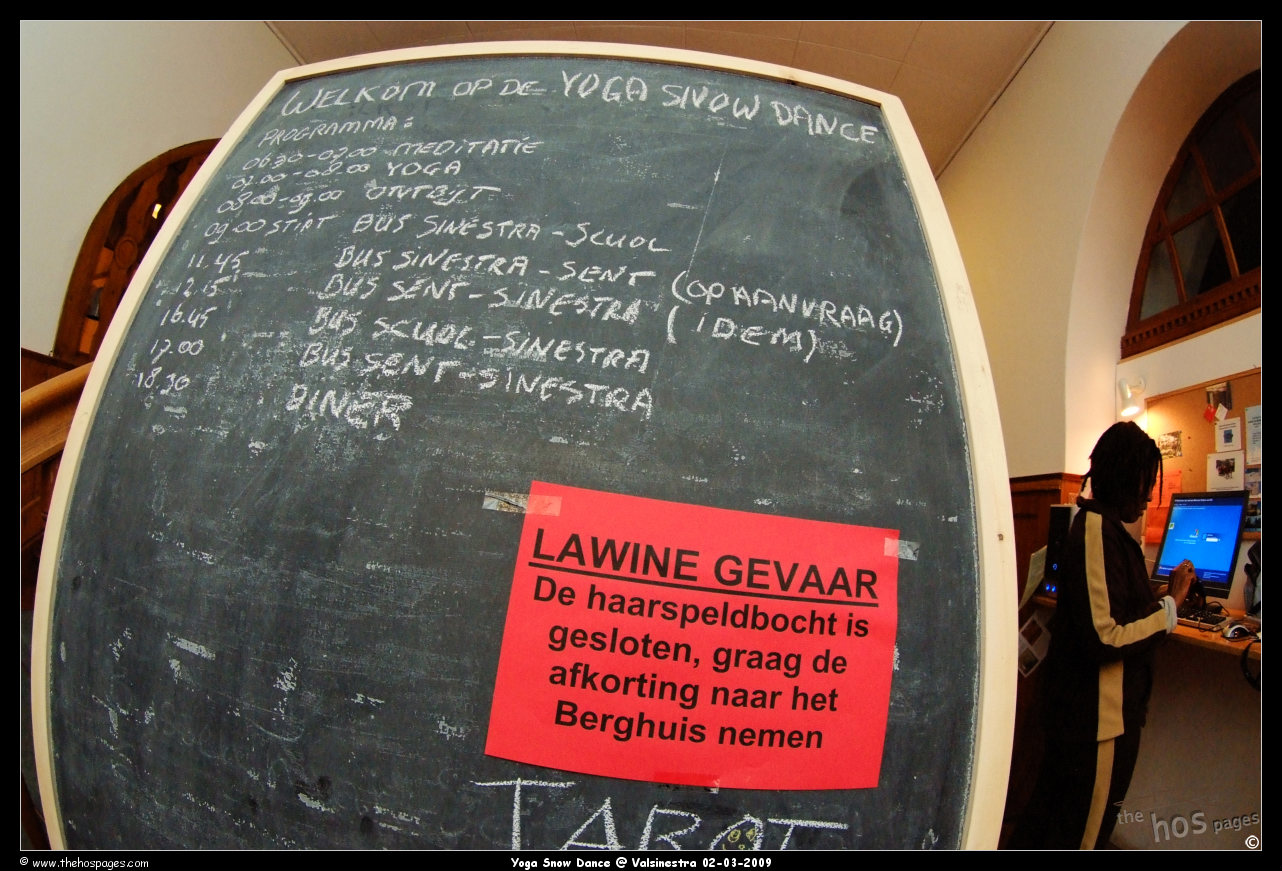 WELKOM OP DE YOGA SNOW DANCE
PROGRAMMA:
06.30-07.00 MEDITATIE
07.00-08.00 YOGA
08.00-09.00 ONTBIJT
09.00 STIPT BUS SINESTRA-SCUOL
11.45 BUS SINESTRA-SENT (OP AANVRAAG)
12.15 BUS SENT-SINESTRA (IDEM)
16.45 BUS SCUOL-SINESTRA
17.00 BUS SENT-SINESTRA
18.30 DINER
LAWINE GEVAAR
De haarspeldbocht is
gesloten, graag de
afkorting naar het
Berghuis nemen
TAROT
the hos pages
©
© www.thehospages.com
Yoga Snow Dance @ Valsinestra 02-03-2009